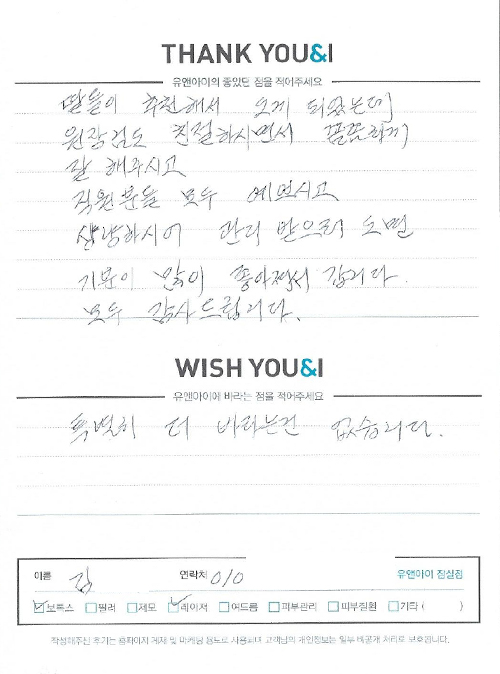 THANK YOU&I
유앤아이의 좋았던 점을 적어주세요
딸들이 추천해서 오게 되었는데
원장님도 친절하시면서 꼼꼼하게
잘 해주시고
직원분들 모두 예쁘시고
상냥하시어 관리 받으러 오면
기분이 많이 좋아져서 갑니다.
모두 감사드립니다.
WISH YOU&I
유앤아이에 바라는 점을 적어주세요
특별히 더 바라는건 없습니다.
이름 김 연락처 010 유앤아이 잠실점
보톡스 필러 제모 레이저 여드름 피부관리 피부질환 기타 ( )
작성해주신 후기는 홈페이지 게재 및 마케팅 용도로 사용되며 고객님의 개인정보는 일부 비공개 처리로 보호됩니다.